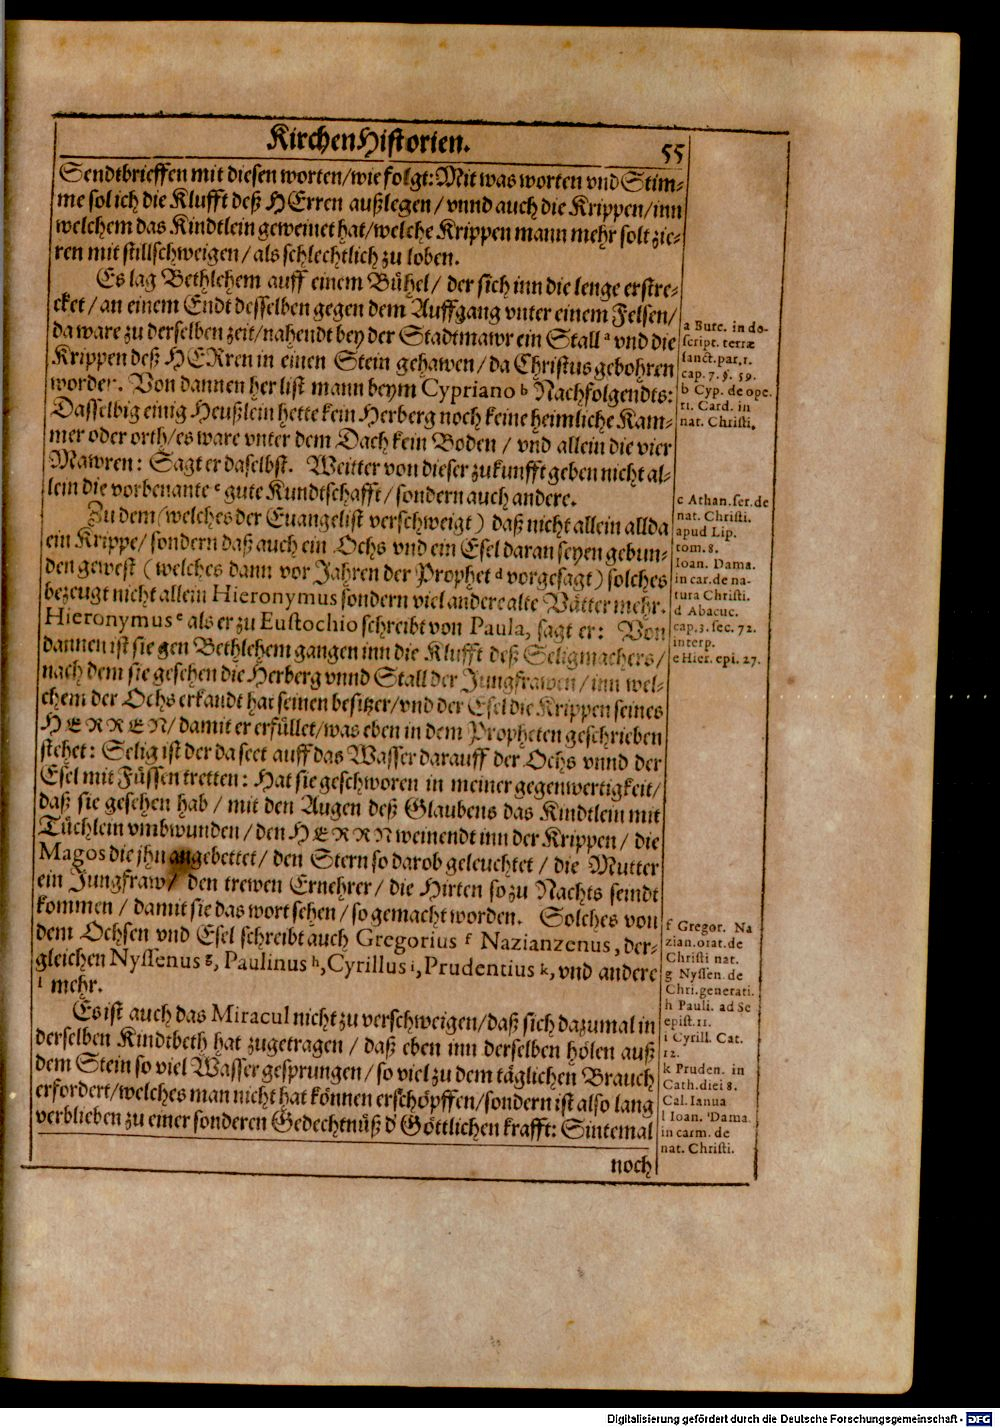 KirchenHistorien.
55
Sendtbrieffen mit diesen worten/wie folgt: Mit was worten vnd Stim-
me sol ich die Klufft deß HErren außlegen/ vnnd auch die Krippen/inn
welchem das Kindtlein geweinet hat/welche Krippen mann mehr solt zie-
ren mit stillschweigen/ als schlechtlich zu loben.
Es lag Bethlehem auff einem Bühel/ der sich inn die lenge erstre-
cket/ an einem Endt desselben gegen dem Auffgang vnter einem Felsen/
da ware zu derselben zeit/nahendt bey der Stadtmawr ein Stall a vnd die
Krippen deß HERren in einen Stein gehawen/ da Christus gebohren
worden. Von dannen her list mann beym Cypriano b Nachfolgendts:
Dasselbig einig Heußlein hette kein Herberg noch keine heimliche Kam-
mer oder orth/es ware vnter dem Dach kein Boden / vnd allein die vier
Mawren: Sagt er daselbst. Weitter von dieser zukunfft geben nicht al-
lein die vorbenante c gute Kundtschafft/ sondern auch andere.
Zu dem (welches der Euangelist verschweigt) daß nicht allein allda
ein Krippe/ sondern daß auch ein Ochs vnd ein Esel daran seyen gebun-
den gewest (welches dann vor Jahren der Prophet d vorgesagt) solches
bezeugt nicht allein Hieronymus sondern viel andere alte Vätter mehr.
Hieronymus e als er zu Eustochio schreibt von Paula, sagt er: Von
dannen ist sie gen Bethlehem gangen inn die Klufft deß Seligmachers/
nach dem sie gesehen die Herberg vnnd Stall der Jungfrawen/ inn wel-
chem der Ochs erkandt hat seinen besitzer/vnd der Esel die Krippen seines
HERREN/ damit er erfüllet/was eben in dem Propheten geschrieben
stehet: Selig ist der da seet auff das Wasser darauff der Ochs vnnd der
Esel mit Füssen tretten: Hat sie geschworen in meiner gegenwertigkeit/
daß sie gesehen hab / mit den Augen deß Glaubens das Kindtlein mit
Tüchlein vmbwunden/ den HERRN weinendt inn der Krippen/ die
Magos die jhn angebettet/ den Stern so darob geleuchtet / die Mutter
ein Jungfraw/ den trewen Ernehrer/ die Hirten so zu Nachts seindt
kommen / damit sie das wort sehen/ so gemacht worden. Solches von
dem Ochsen vnd Esel schreibt auch Gregorius f Nazianzenus, der-
gleichen Nyssenus g, Paulinus h, Cyrillus i, Prudentius k, vnd andere
l mehr.
Es ist auch das Miracul nicht zu verschweigen/daß sich dazumal in
derselben Kindtbeth hat zugetragen / daß eben inn derselben hölen auß
dem Stein so viel Wasser gesprungen/ so viel zu dem täglichen Brauch
erfordert/welches man nicht hat können erschöpffen/sondern ist also lang
verblieben zu einer sonderen Gedechtnüß d' Göttlichen krafft: Sintemal
noch
a Burc. in de-
script. terræ
sanct. par. 1.
cap. 7. §. 59.
b Cyp. de ope.
ti. Card. in
nat. Christi.
c Athan. ser. de
nat. Christi.
apud Lip.
tom. 8.
Ioan. Dama.
in car. de na-
tura Christi.
d Abacuc.
cap. 3. sec. 72.
interp.
e Hier. epi. 27.
f Gregor. Na
zian. orat. de
Christi nat.
g Nyssen. de
Chri. generati.
h Pauli. ad Se
epist. 11.
i Cyrill. Cat.
12.
k Pruden. in
Cath. diei 8.
Cal. Ianua
l Ioan. Dama.
in carm. de
nat. Christi.
Digitalisierung gefördert durch die Deutsche Forschungsgemeinschaft - DFG